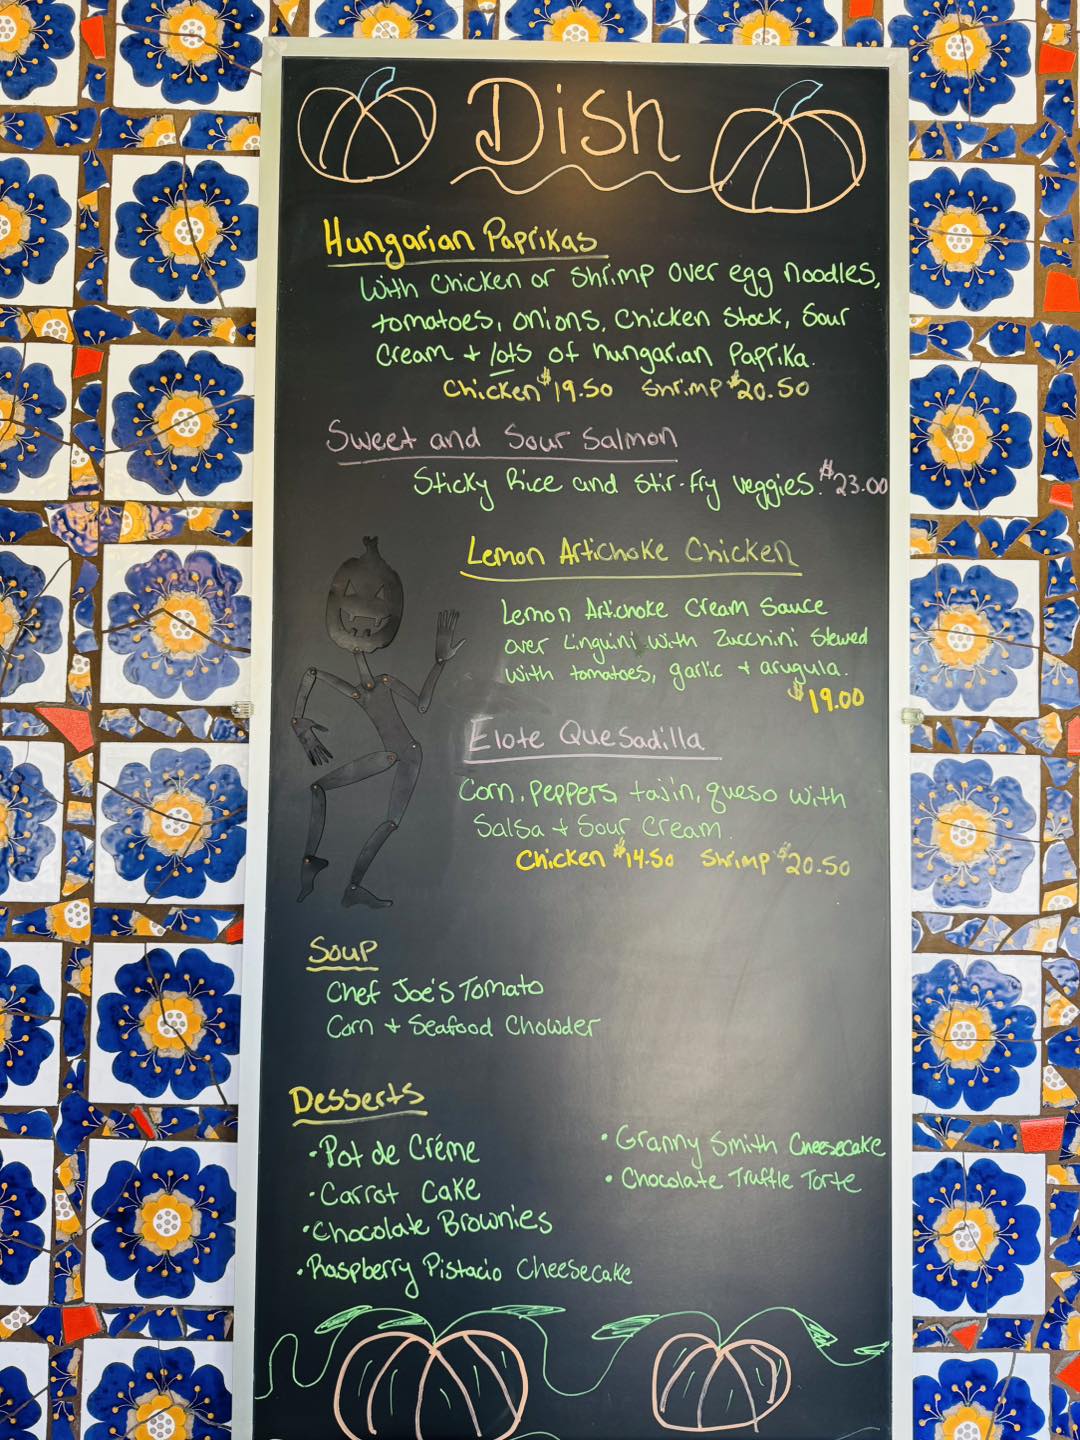 Dish
Hungarian Paprikas
With Chicken or Shrimp over egg noodles,
tomatoes, onions, Chicken Stock, Sour
Cream + lots of hungarian Paprika.
Chicken $19.50 Shrimp $20.50
Sweet and Sour Salmon
Sticky Rice and Stir-Fry Veggies. $23.00
Lemon Artichoke Chicken
Lemon Artichoke Cream Sauce
over Linguini with Zucchini Stewed
with tomatoes, garlic + arugula.
$19.00
Elote Quesadilla
Corn, Peppers, tajin, queso with
Salsa + Sour Cream.
Chicken $14.50 Shrimp $20.50
Soup
Chef Joe's Tomato
Corn + Seafood Chowder
Desserts
• Pot de Créme
• Carrot Cake
• Chocolate Brownies
• Raspberry Pistacio Cheesecake
• Granny Smith Cheesecake
• Chocolate Truffle Torte